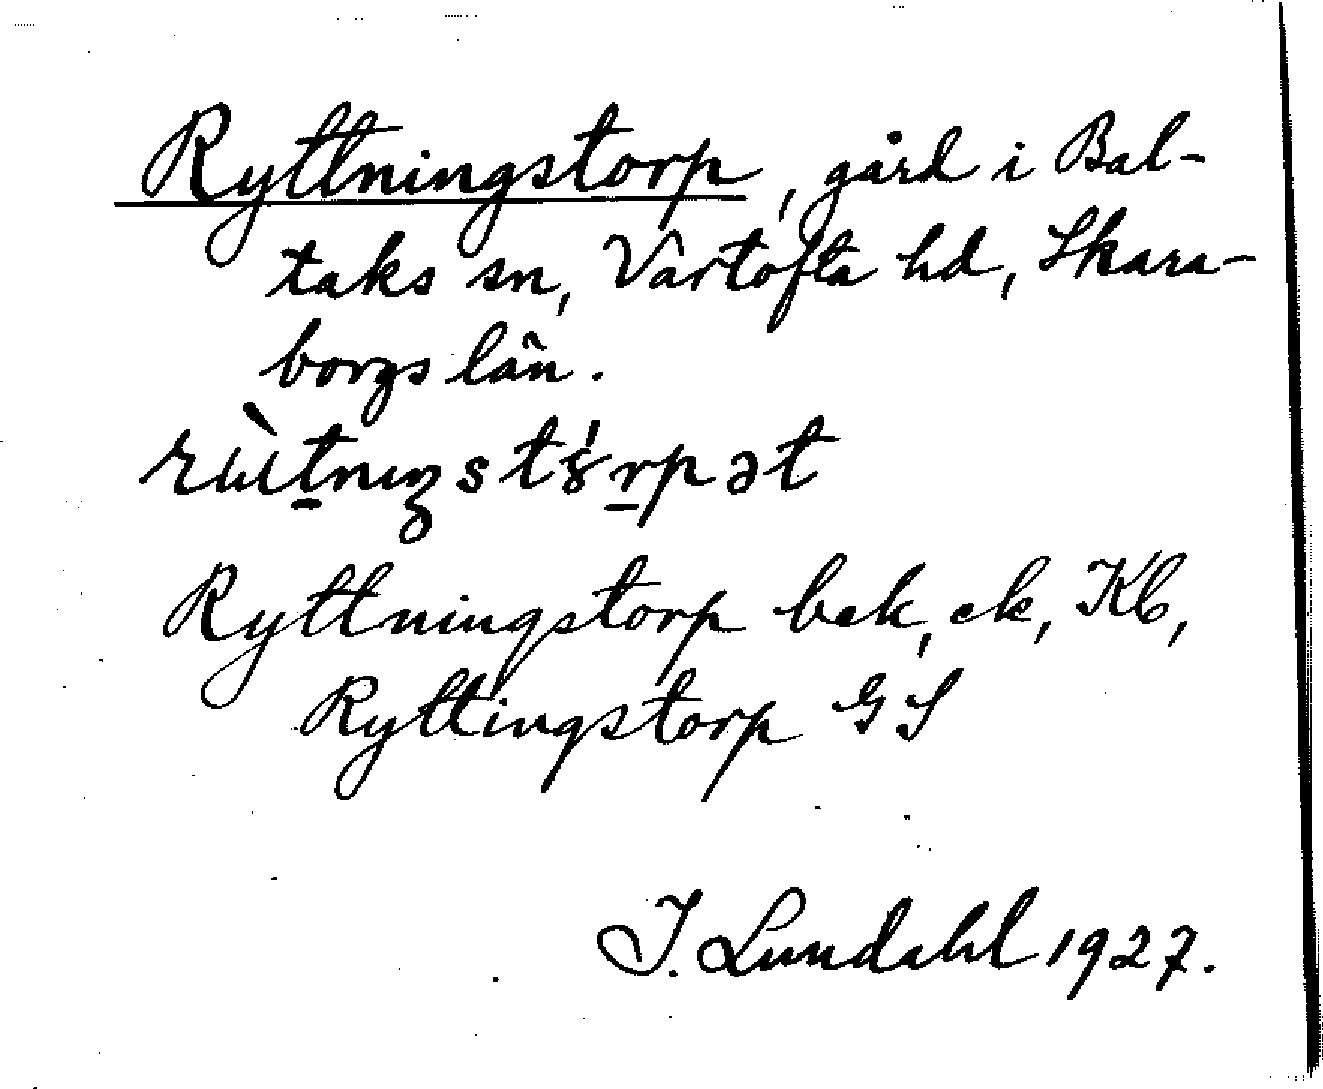 Ryttningstorp, gård i Bal-
taks sn, Vartofta hd, Skara-
borgs län.
Ryttningstorp bek, ek, Kb,
Ryttingstorp GS
I. Lundahl 1927.